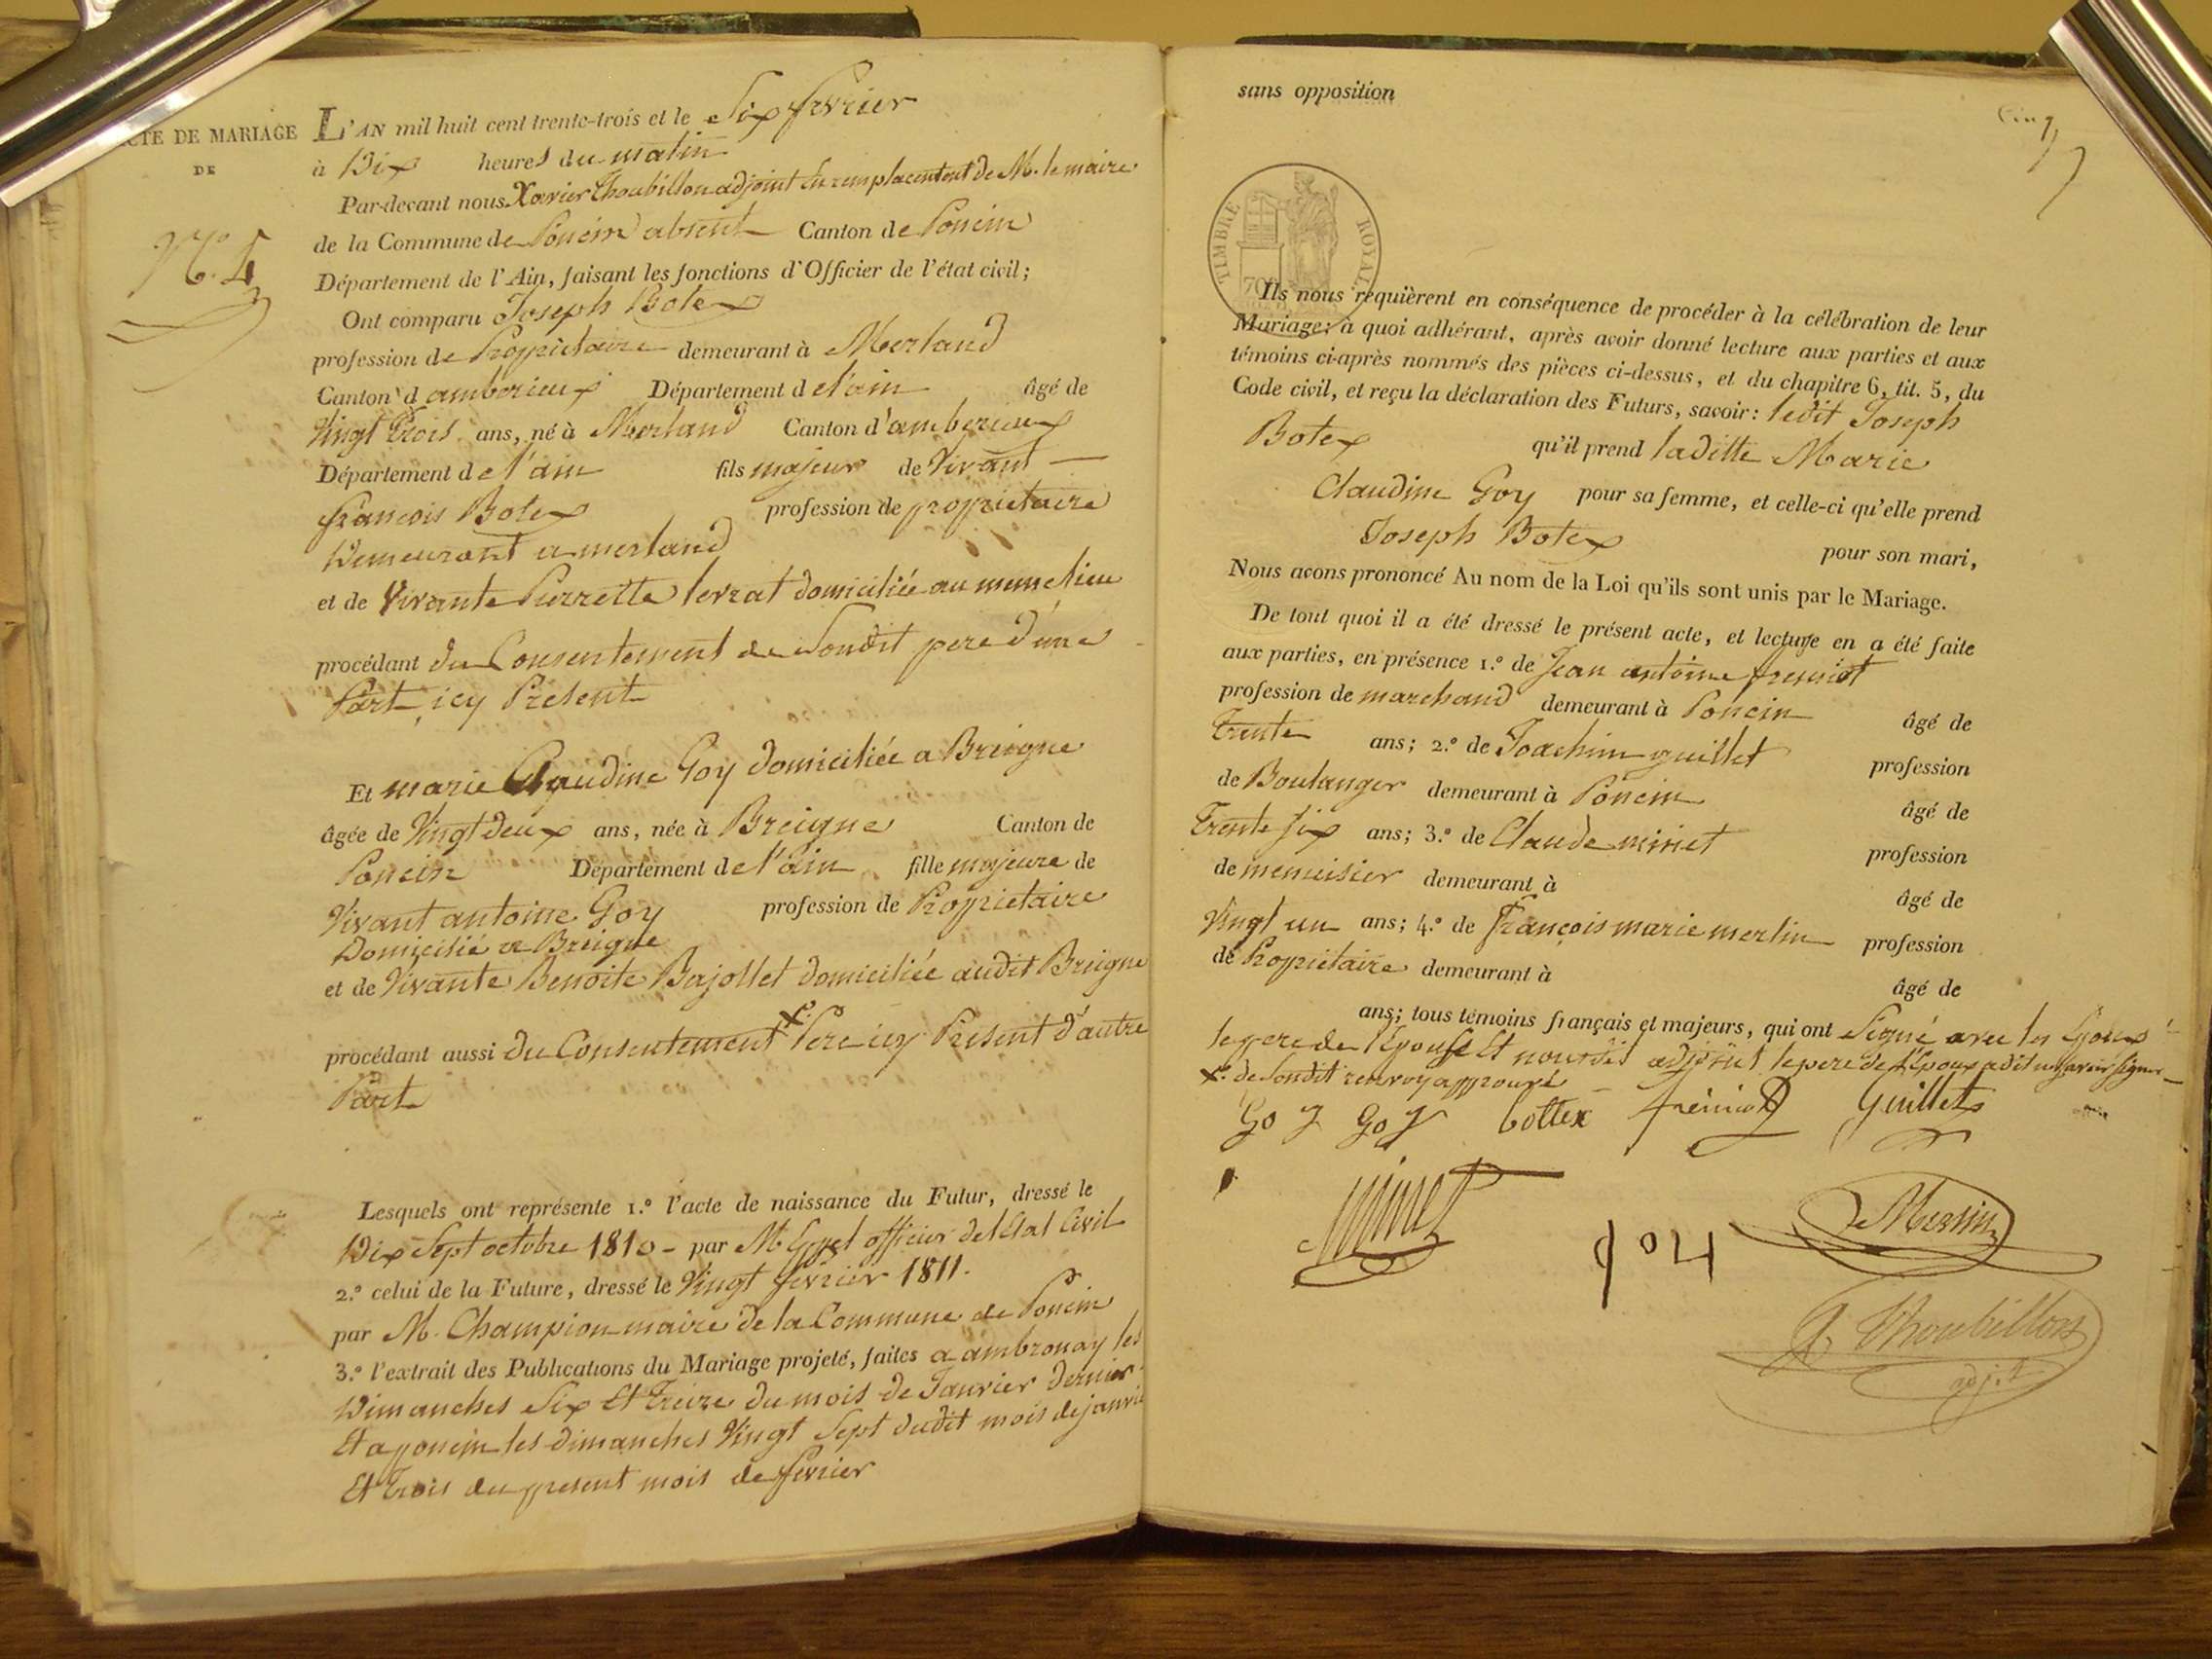 ACTE DE MARIAGE
DE
N.º 4
L'AN mil huit cent trente-trois et le Six fevrier
à Dix heures du matin
Par-devant nous Xavier Thoubillon adjoint en remplacement de M. le maire
de la Commune de Poncin absent Canton de Poncin
Département de l'Ain, faisant les fonctions d'Officier de l'état civil;
Ont comparu Joseph Botex
profession de Propriétaire demeurant à Merland
Canton d'amberieux Département de l'ain âgé de
Vingt Trois ans, né à Merland Canton d'amberieux
Département de l'ain fils majeur de Vivant
françois Botex profession de proprietaire
Demeurant a merland
et de Vivante Pierrette levrat domiciliée au meme lieu
procédant du Consentement de Sondit pere d'une
Part icy Present
Et marie Claudine Goy domiciliée a Breigne
âgée de Vingt deux ans, née à Breigne Canton de
Poncin Département de l'ain fille majeure de
Vivant antoine Goy profession de Propriétaire
Domicilié a Breigne
et de Vivante Benoite Bajollet domiciliée audit Breigne
procédant aussi du Consentement x. Pere icy Present d'autre
Part
Lesquels ont représenté 1.º l'acte de naissance du Futur, dressé le
Dix Sept octobre 1810 - par M. officier de l'Etat Civil
2.º celui de la Future, dressé le Vingt fevrier 1811.
par M. Champion maire de la Commune de Poncin
3.º l'extrait des Publications du Mariage projeté, faites a ambronay les
Dimanches Six Et Treize du mois de Janvier dernier
Et a poncin les dimanches Vingt Sept dudit mois de janvier
Et Trois du present mois de fevrier
sans opposition
Cinq
TIMBRE ROYAL
Ils nous requièrent en conséquence de procéder à la célébration de leur
Mariage: à quoi adhérant, après avoir donné lecture aux parties et aux
témoins ci-après nommés des pièces ci-dessus, et du chapitre 6, tit. 5, du
Code civil, et reçu la déclaration des Futurs, savoir: ledit Joseph
Botex qu'il prend laditte Marie
Claudine Goy pour sa femme, et celle-ci qu'elle prend
Joseph Botex pour son mari,
Nous avons prononcé Au nom de la Loi qu'ils sont unis par le Mariage.
De tout quoi il a été dressé le présent acte, et lecture en a été faite
aux parties, en présence 1.º de Jean antoine fremiot
profession de marchand demeurant à Poncin âgé de
Trente ans; 2.º de Joachim guillet profession
de Boulanger demeurant à Poncin âgé de
Trente six ans; 3.º de Claude minet profession
de menuisier demeurant à âgé de
Vingt un ans; 4.º de François marie merlin profession
de Propriétaire demeurant à âgé de
ans; tous témoins français et majeurs, qui ont Signé avec les Epoux
le pere de l'Epouse Et nousdit adjoint le pere de l'Epoux a dit ne savoir signer
x. de Sondit renvoy approuvé
Goy Goy bottex frémiot Guillet
Minet goy Merlin
X. Thoubillon
adj.t